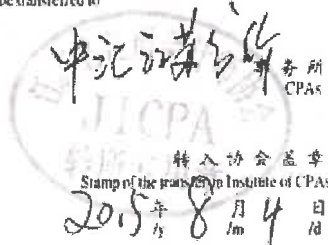 be transferred to
中汇江苏分所
事务所
CPAs
JICPA
转入协会盖章
Stamp of the transfer-in Institute of CPAs
2015年8月4日
/y /m /d